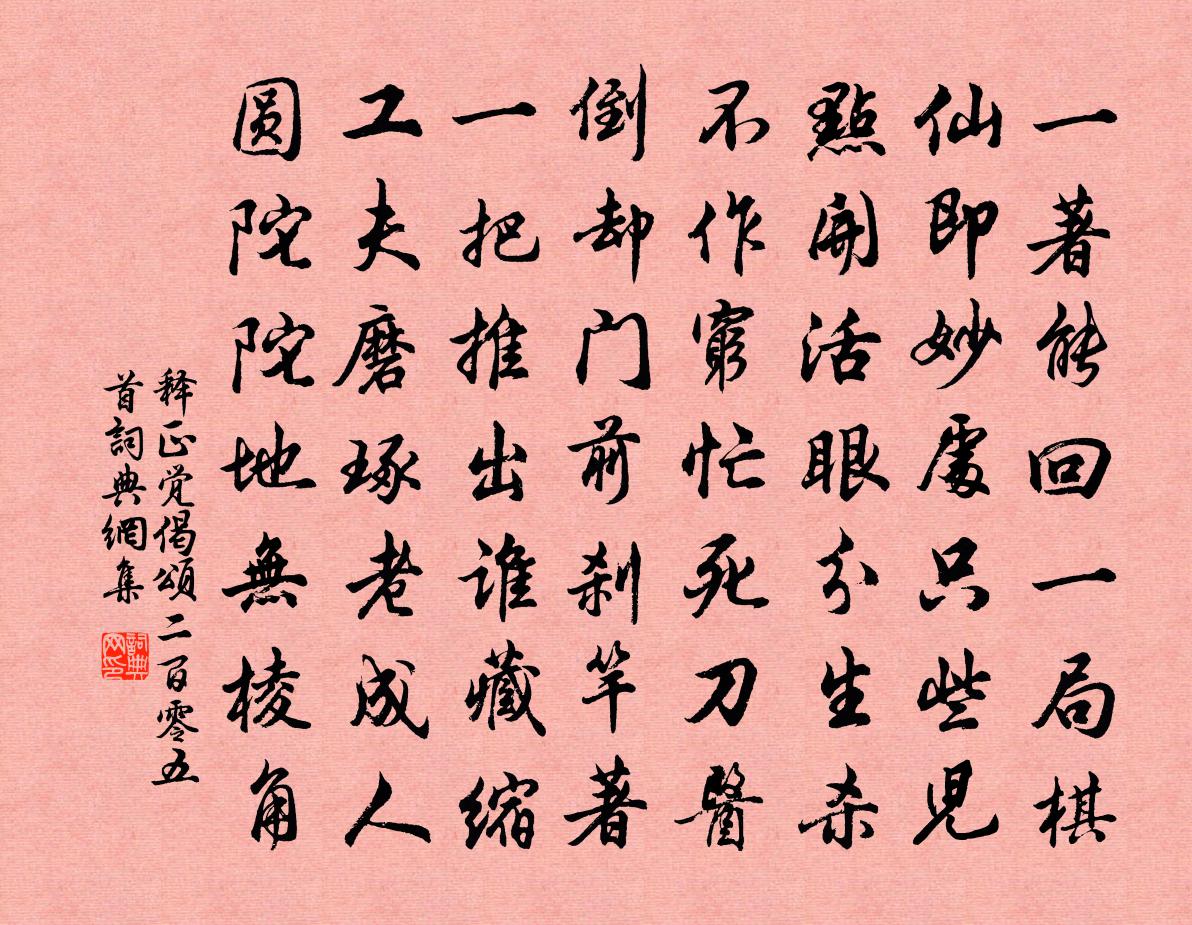 一著能回一局棋
仙即妙處只些兒
點開活眼分生杀
不作窮忙死刀醫
倒却门前刹竿著
一把推出谁藏缩
工夫磨琢老成人
圆陀陀地無棱角
释正觉偈頌二百零五
首詞典網集
詞典
网印